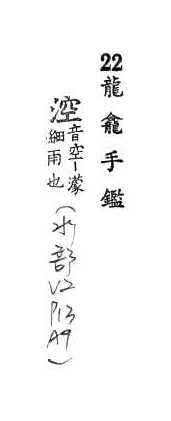 22龍龕手鑑
涳音空ー濛細雨也(水部V2P13A9)